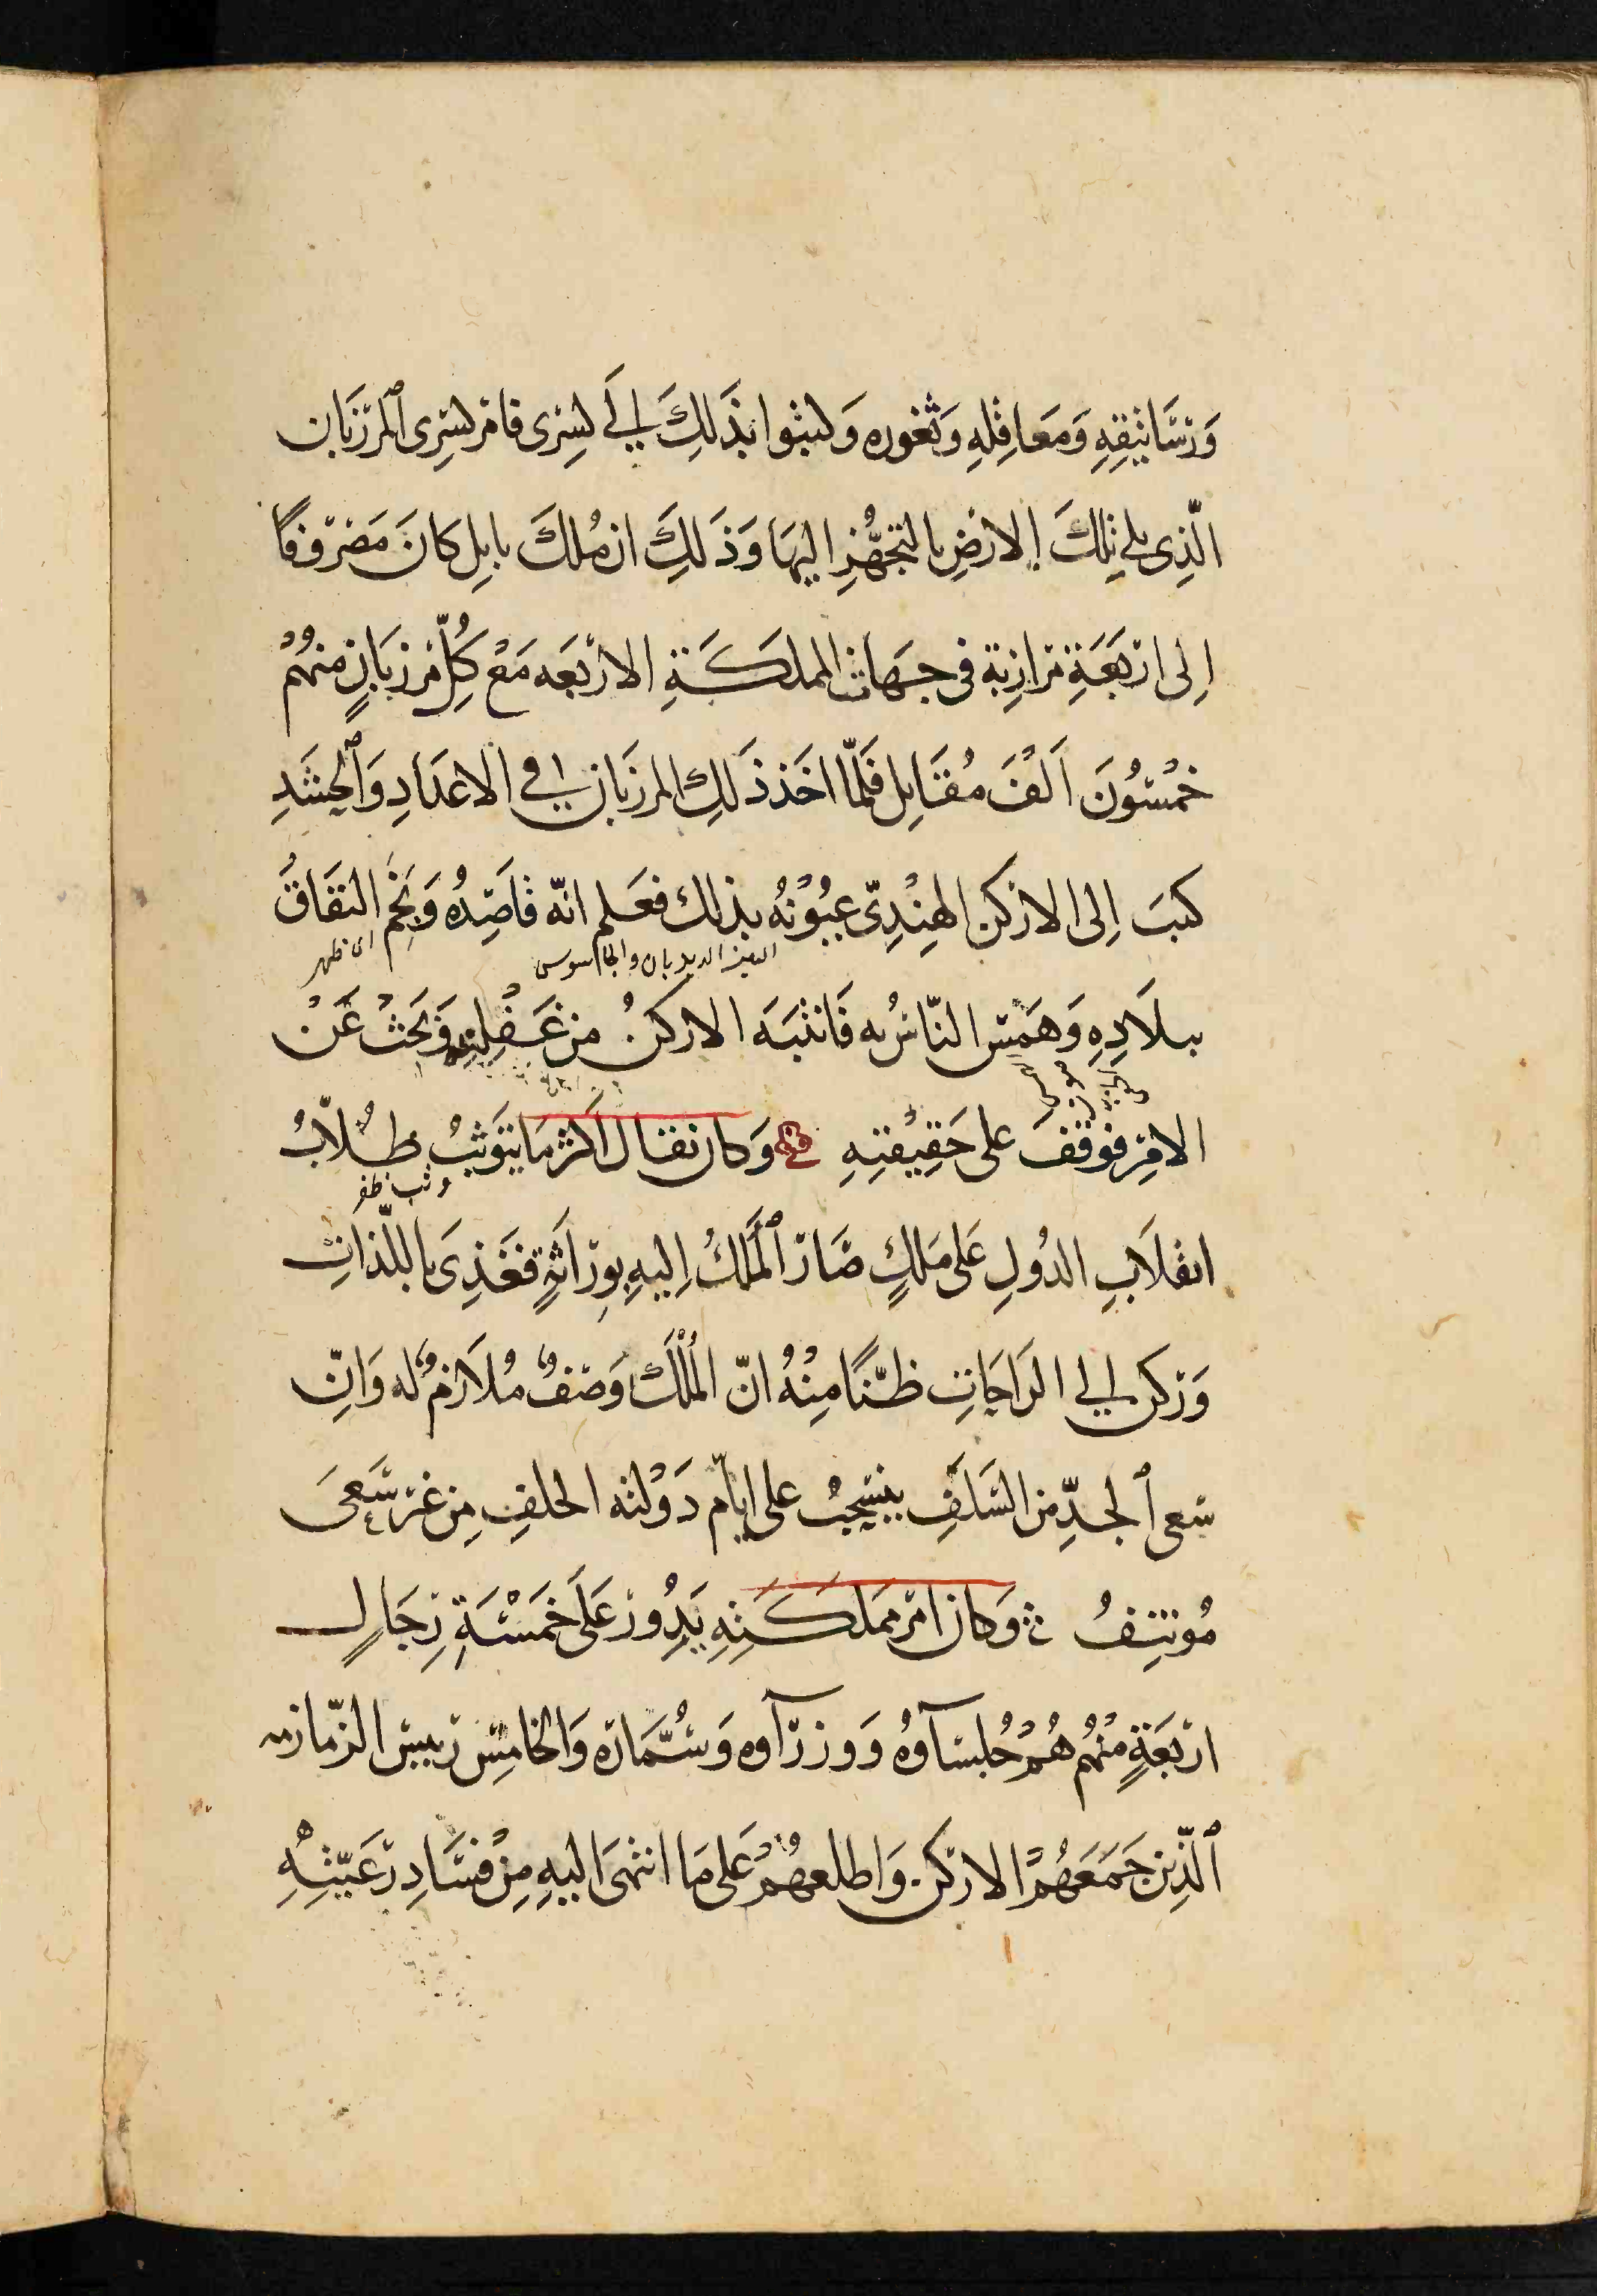 وَرَسَاتِيقِهِ وَمَعَاقِلِهِ وَثُغُورِهِ وَكَتبُوا بِذَلِكَ اِلَى كِسْرَى فَامَرَ كِسْرِى ٱلمرْزَبَان
الَّذِى يلي تِلكَ الارْضِ بالتجَهُّزِ اليهَا وَذَلكَ انَّ مُلكَ بابِل كانَ مَصْرُوفًا
اِلى ارْبَعَةِ مَرَازِبةٍ فى جِهَاتِ المملكَةِ الارْبَعَه مَعَ كُلِّ مَرْزبَانٍ منهُمْ
خمْسُونَ اَلفَ مُقَاتِل فَلَمَّا اخَذ ذَلِكَ المرزَبَان في الاعْدَادِ وَٱلحَشَدِ
كتبَ اِلى الاركن الهِنْدِىّ عُيُونُهُ بذلك فعَلم انّه قَاصِدُه وَنَجَمَ النفَاقُ
العين الديدبان والجاسوس
اى ظهر
ببلَادِهِ وَهَمسَ النَّاسُ به فَانتبَهَ الاركنُ من غَفْلَتِهِ وَبَحَثَ عَنْ
الامْرِ فوقَفَ على حَقِيْقتِهِ وَكان يقال اكثر مَا يَتَوَثبُ طُلَّابُ
وثب ظفر
انقلَابِ الدُولِ عَلى مَلكٍ صَارَ ٱلمُلكُ اِليهِ بوِرَاثَةٍ فَغَذِىَ باللّذاتِ
وَرَكن الى الرَاحَاتِ ظَنًّا مِنْهُ انّ المُلْكَ وَصْفٌ مُلَازِمٌ له وَانّ
سَعى ٱلجدِّ من السَلَفِ ينسَحِبُ على ايّام دَوْلته الخلفِ مِن غَيْر سَعىَ
مُوتنِفُ وَكان امْر مملكَتِهِ يَدُورُ عَلَى خَمْسَةِ رِجَالٍ
ارْبَعَةٍ مِنْهُم هُمْ جُلسَآوُهُ وَوزرَآوه وَسُمَّارُه وَالخامِسُ رَييسُ الزّمازمه
ٱلّذِين جَمَعَهُمُ الارْكن وَاطلعهُمْ عَلى مَا انتهىَ اليهِ مِنْ فسَادِ رَعيّتِهِ